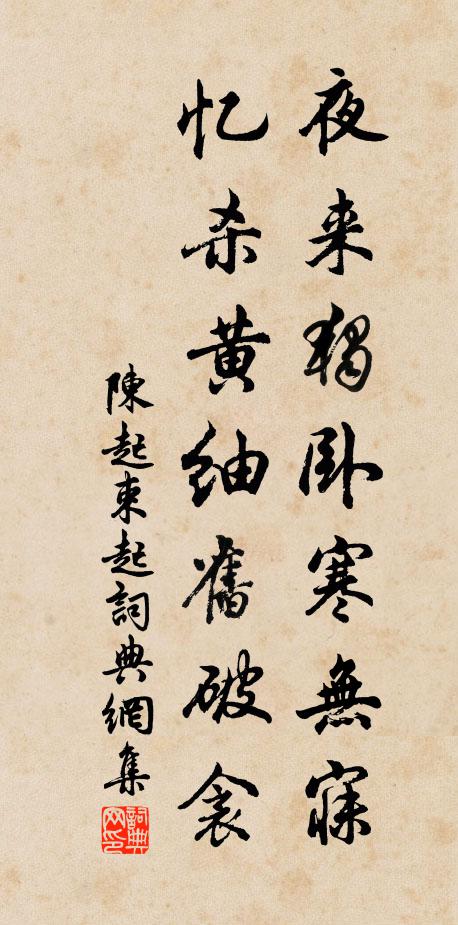 夜来獨卧寒無寐
忆杀黄紬舊破衾
陳起東起詞典網集
詞典网印